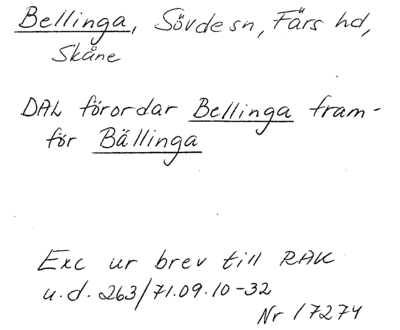 Bellinga, Sövde sn, Färs hd,
Skåne
DAL förordar Bellinga fram-
för Bällinga
Exc ur brev till RAK
u.d. 263/71.09.10-32
Nr 17274